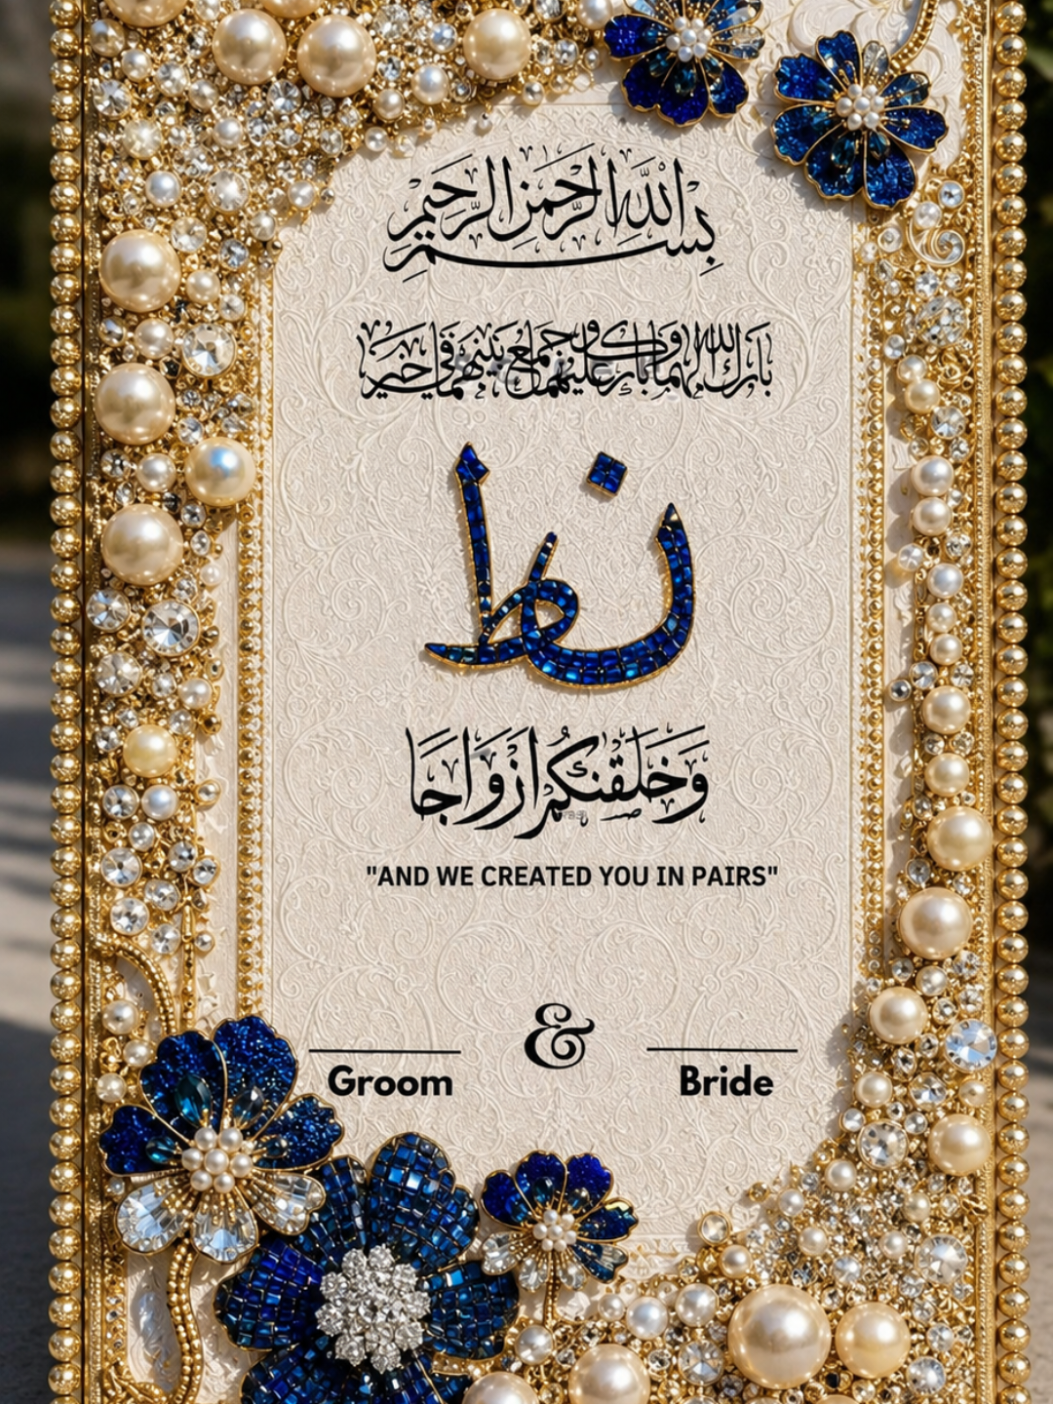 بسم الله الرحمن الرحيم
بارك الله لهما وبارك عليهما وجمع بينهما في خير
نط
وَخَلَقْنَكُمْ أَزْوَاجًا
"AND WE CREATED YOU IN PAIRS"
&
Groom Bride